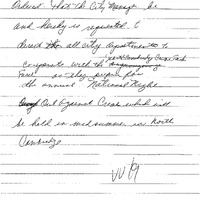 Ordered that the City Manager be
and hereby is requested to
direct all city departments to
cooperate with the
Force as they prepare for
the annual National Night
Out Against Crime which will
be held in midsummer in North
Cambridge